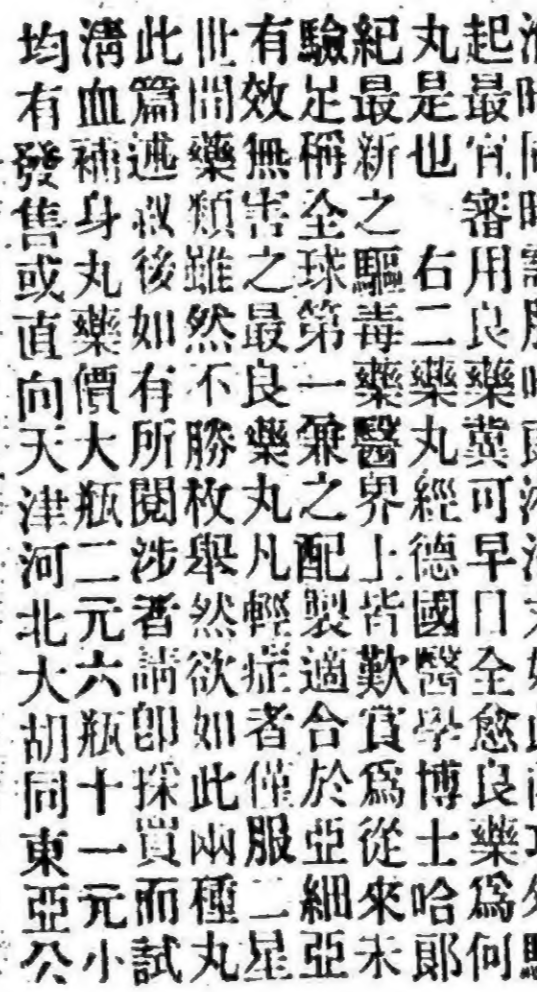 起最宜審用良藥冀可早日全愈良藥爲何
丸是也　右二藥丸經德國醫學博士哈郞
紀最新之驅毒藥醫界上皆歎賞爲從來未
驗足稱全球第一兼之配製適合於亞細亞
有效無害之最良藥丸凡輕症者僅服二星
世間藥類雖然不勝枚舉然欲如此兩種丸
此篇述叙後如有所閱涉者請卽採買而試
淸血補身丸藥價大瓶二元六瓶十一元小
均有發售或直向天津河北大胡同東亞公